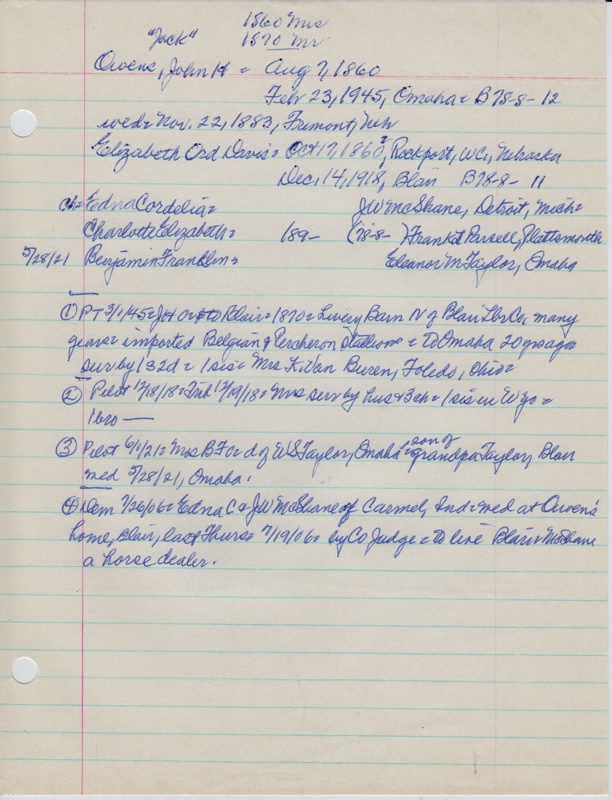 1860 Mrs
"Jack" 1870 Mr
Owens, John H = Aug 7, 1860
Feb 23, 1945, Omaha = B78-8-12
wed = Nov. 22, 1883, Fremont, Neb
Elizabeth Ord Davis = Oct 17, 1860?, Rockport, WC, Nebraska
Dec. 14, 1918, Blair B78-8-11
ch = Edna Cordelia = JW McShane, Detroit, Mich =
Charlotte Elizabeth = 189- (78-8- ) Frank E Parsell, Plattsmouth
5/28/21 Benjamin Franklin = Eleanor M Taylor, Omaha
① PT 3/1/45 = JH O to Blair = 1870 = Livery Barn N of Blair Lbr Co, many
years = imported Belgian & Percheron Stallions = to Omaha 20 yrs ago =
surv by 1 s 2 d = 1 sis = Mrs K Van Buren, Toledo, Ohio =
② Pilot 12/18/18 = Trib 12/19/18 = Mrs surv by hus & 3 ch = 1 sis in Wyo =
1 bro —
③ Pilot 6/1/21 = Mrs B F O = d of WS Taylor, Omaha = son of grandpa Taylor, Blair
wed 5/28/21, Omaha.
④ Dem 7/26/06 = Edna C & JW McShane of Carmel, Ind = wed at Owens'
home, Blair, last Thurs = 7/19/06 = by Co Judge = to live Blair = McShane
a horse dealer.